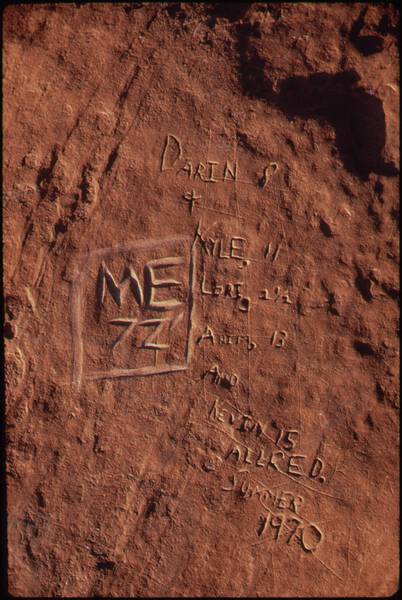 DARIN 8
&
KYLE, 11
LORI, 2½
ANITA, 13
AND
KEVIN 15
ALLRED.
SUMMER
1970
ME
72